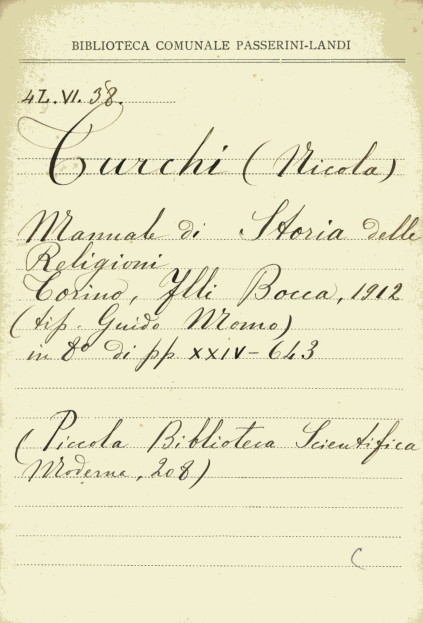 BIBLIOTECA COMUNALE PASSERINI-LANDI
4L.VI.38.
Turchi (Nicola)
Manuale di Storia delle
Religioni
Torino, Flli Bocca, 1912
(tip. Guido Momo)
in 8° di pp XXIV-643
(Piccola Biblioteca Scientifica
Moderna, 208)
C